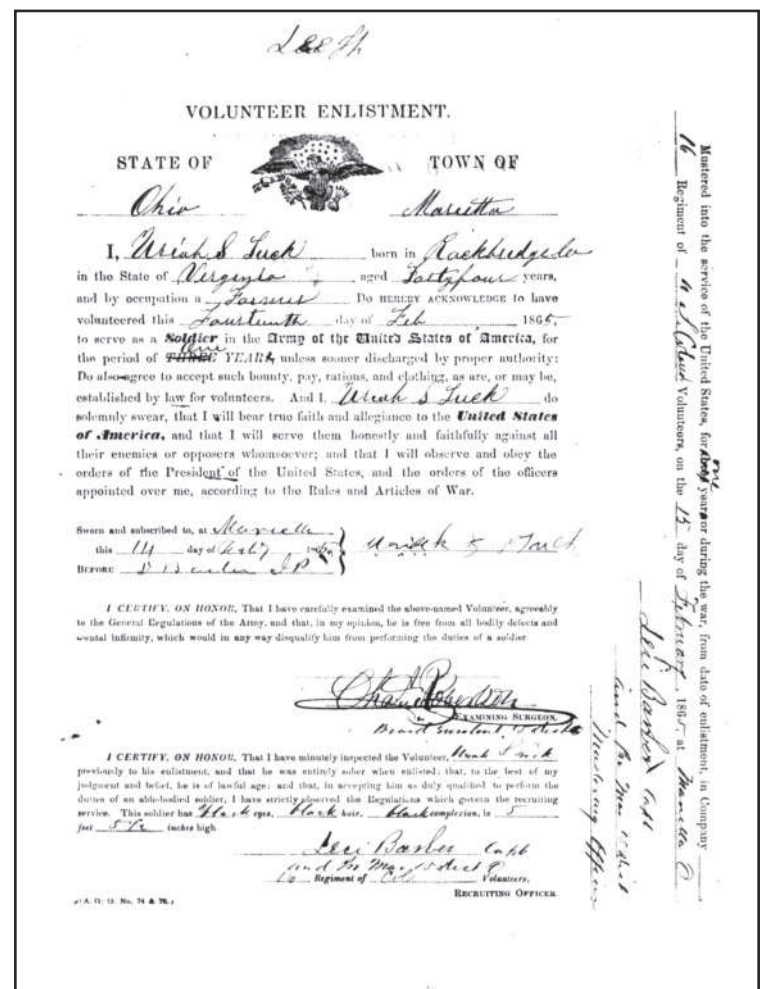 VOLUNTEER ENLISTMENT.
STATE OF TOWN OF
Ohio Marietta
I, Uriah S Tuck born in Rockbridge Co
in the State of Virginia aged Fortyfour years,
and by occupation a Farmer Do HEREBY ACKNOWLEDGE to have
volunteered this Fourteenth day of Feb 1865,
to serve as a Soldier in the Army of the United States of America, for
the period of THREE one YEARS, unless sooner discharged by proper authority:
Do also agree to accept such bounty, pay, rations, and clothing, as are, or may be,
established by law for volunteers. And I, Uriah S Tuck do
solemnly swear, that I will bear true faith and allegiance to the United States
of America, and that I will serve them honestly and faithfully against all
their enemies or opposers whomsoever; and that I will observe and obey the
orders of the President of the United States, and the orders of the officers
appointed over me, according to the Rules and Articles of War.
Sworn and subscribed to, at Marietta
this 14 day of Feby 1865
BEFORE J P
Uriah S Tuck
I CERTIFY, ON HONOR, That I have carefully examined the above-named Volunteer, agreeably
to the General Regulations of the Army, and that, in my opinion, he is free from all bodily defects and
mental infirmity, which would in any way disqualify him from performing the duties of a soldier.
Robertson
EXAMINING SURGEON.
Board Surgeon 15 dist O
I CERTIFY, ON HONOR, That I have minutely inspected the Volunteer, Uriah S Tuck
previously to his enlistment, and that he was entirely sober when enlisted; that, to the best of my
judgment and belief, he is of lawful age; and that, in accepting him as duly qualified to perform the
duties of an able-bodied soldier, I have strictly observed the Regulations which govern the recruiting
service. This soldier has black eyes, black hair, black complexion, is 5
feet 5 1/2 inches high.
Levi Barber Capt
and Pro Mar 15 dist O
16 Regiment of Col Volunteers,
RECRUITING OFFICER.
(A. G. O. No. 74 & 76.)
Mustered into the service of the United States, for three one years or during the war, from date of enlistment, in Company
16 Regiment of U S Colored Volunteers, on the 15 day of February, 1865, at Marietta O
Levi Barber Capt
and Pro Mar 15 dist
Mustering Officer